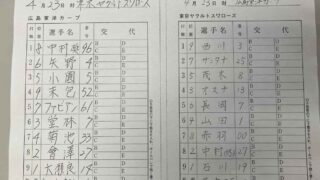 4月23日 対 東京ヤクルトスワローズ
広島東洋カープ
選手名 交代
1 8 中村奨 96
2 6 矢野 4
3 5 小園 5
4 9 末包 52
5 7 ファビアン 61
6 3 堂林 7
7 4 菊池 33
8 2 會澤 27
9 1 大瀬良 14
4月23日 対
東京ヤクルトスワローズ
選手名 交代
1 9 西川 3
2 7 サンタナ 25
3 5 茂木 8
4 3 オスナ 13
5 6 長岡 7
6 4 山田 1
7 8 赤羽 00
8 2 中村
9 1 石川 19